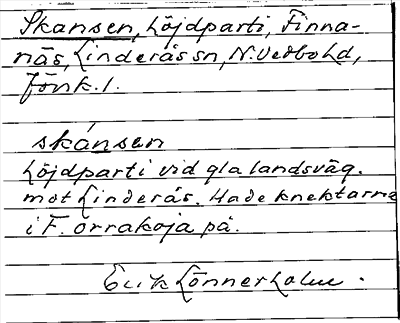 Skansen, höjdparti, Finna-
näs, Linderås sn, N. Vedbo hd,
Jönk. l.
skánsen
höjdparti vid gla landsväg.
mot Linderås. Hade knektarna
i F. orrakoja på.
Erik Lönnerholm.